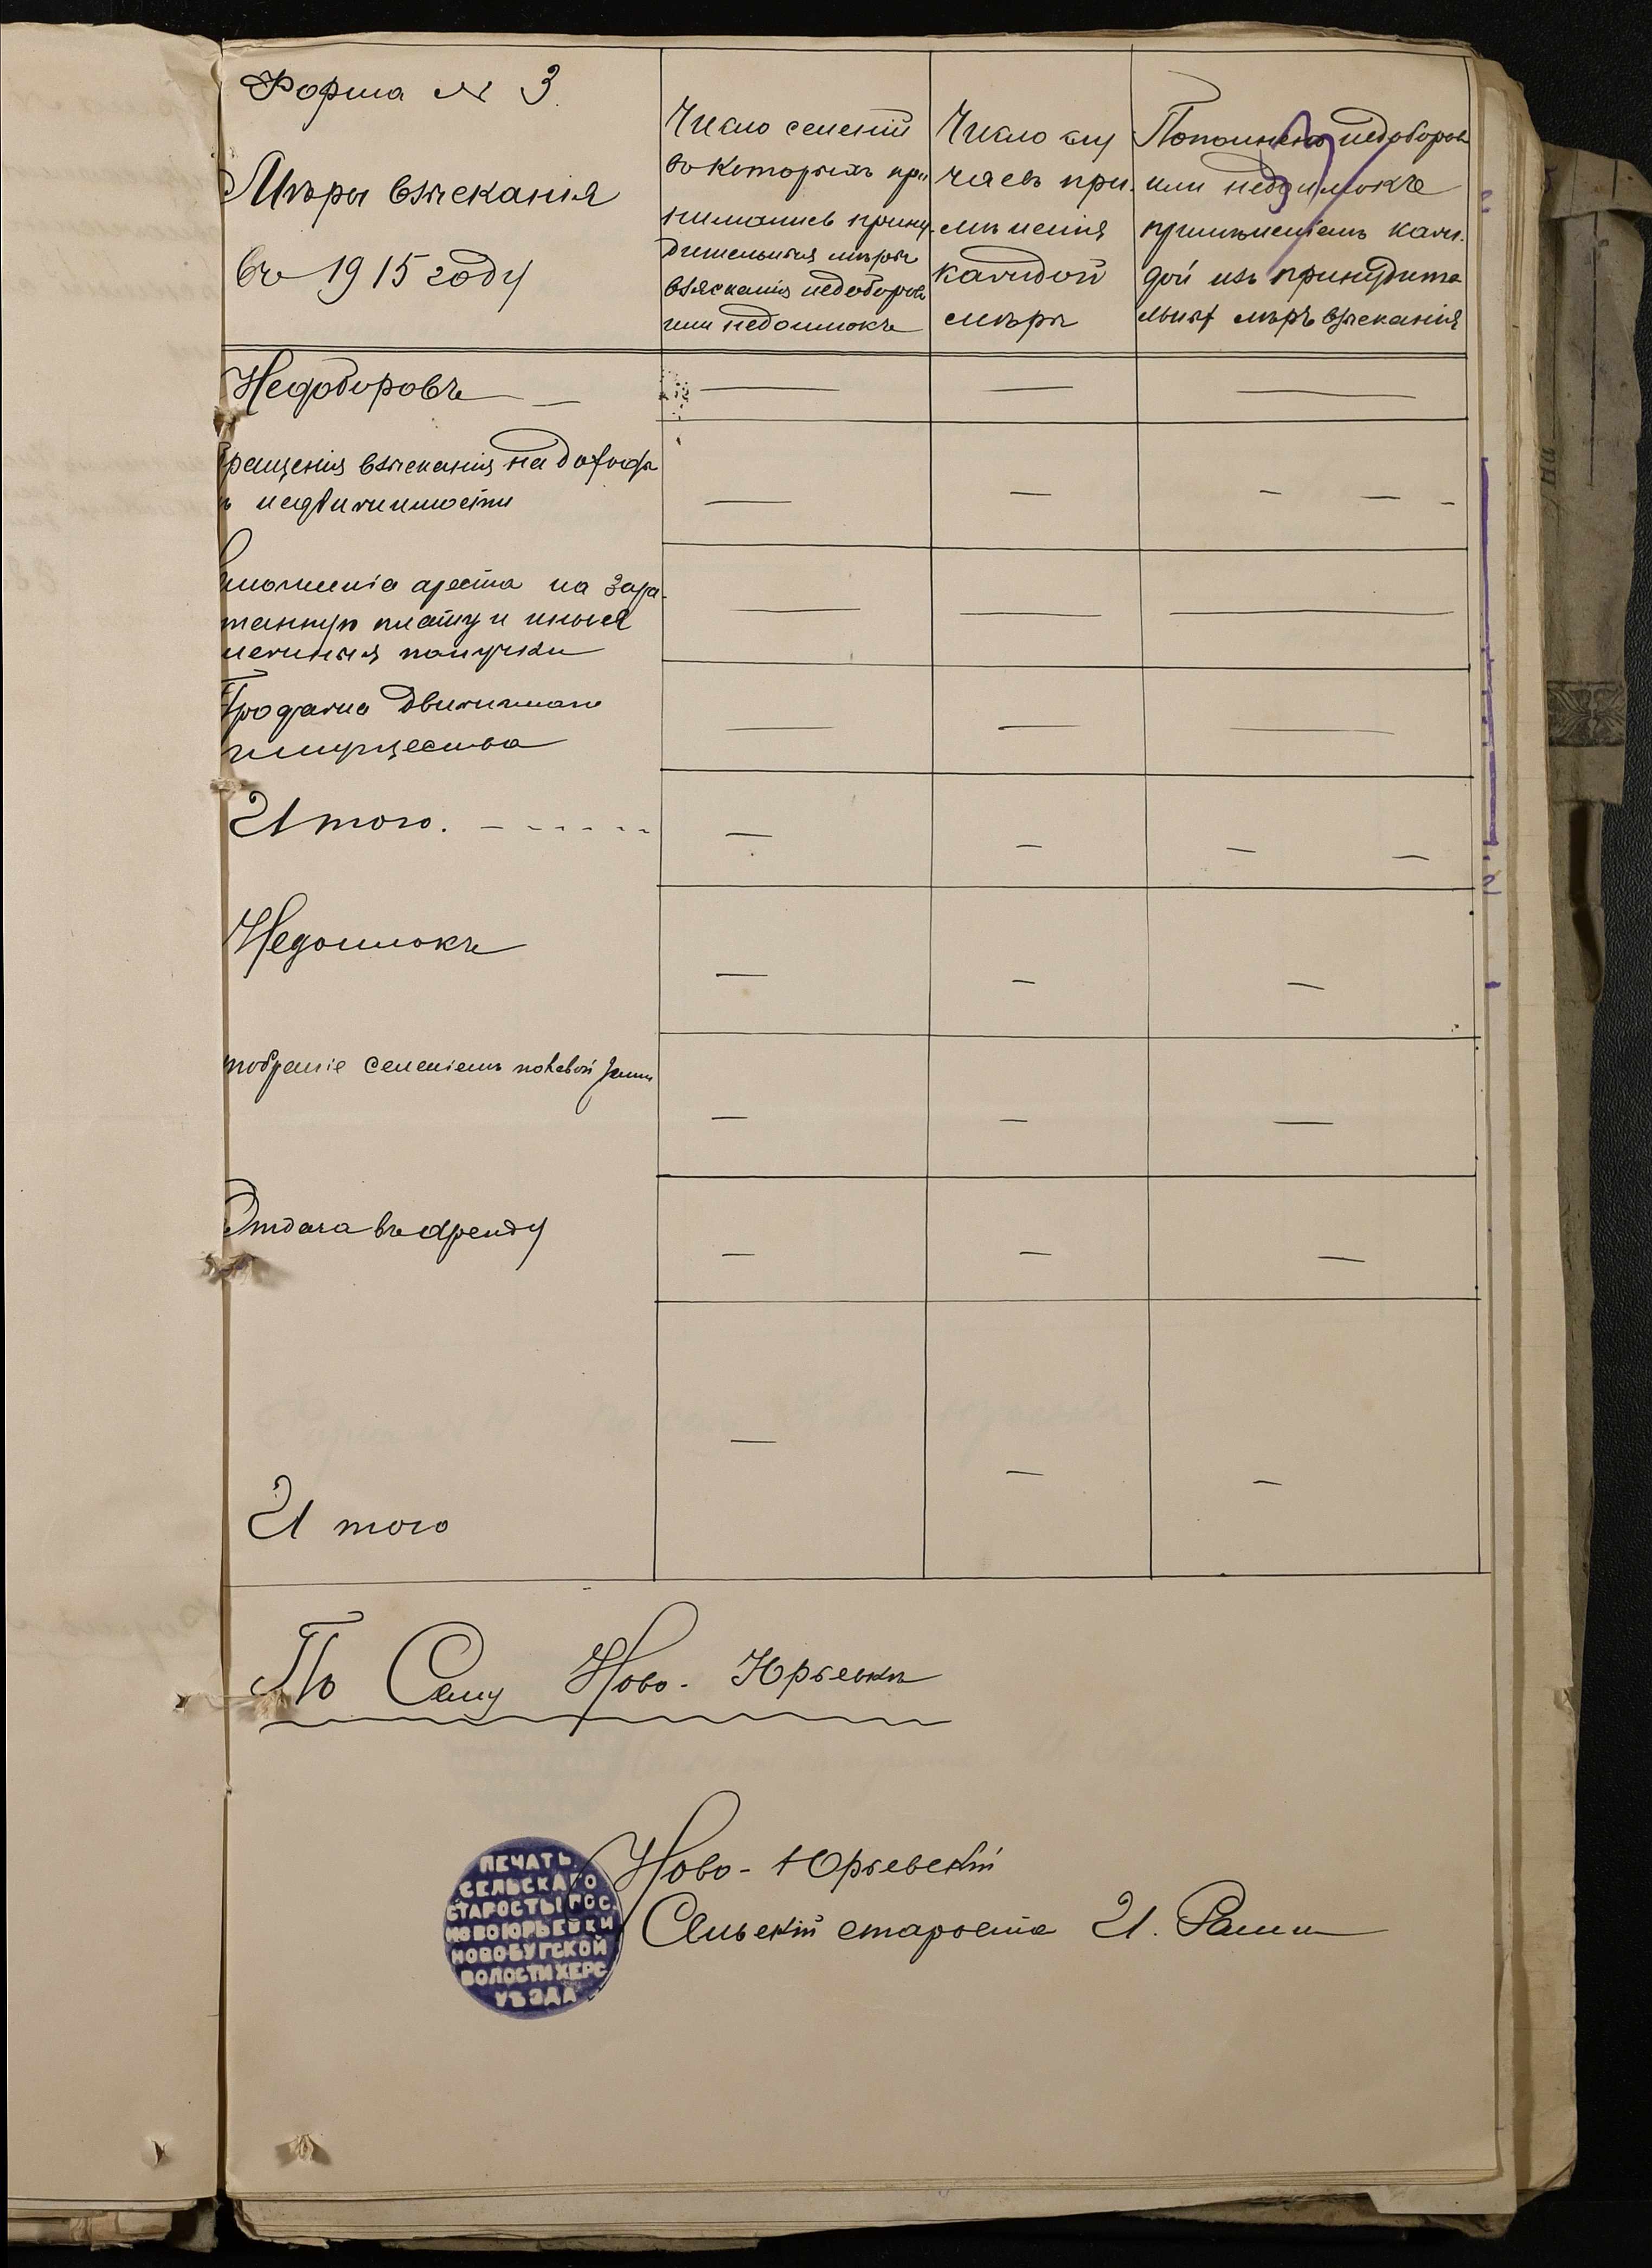 Форма № 3.
Мѣры взысканія
въ 1915 году
Число селеній
въ которыхъ при
нимались прину-
дительныя мѣры
взясканія недоборовъ
или недоимокъ
Число слу
чаевъ при-
мѣненія
каждой
мѣры
Пополнено недоборовъ
или недоимокъ
примѣненіемъ каж-
дой изъ принудите
льныхъ мѣръ взысканія
Недоборовъ — — — —
ращенія взысканія на доходы
ъ недвижимости — — — — —
ложенія ареста на зара-
танную плату и иныя
нежныя получки — — —
Продажа движимаго
имущества — — —
Итого. - - - - - - — — — —
Недоимокъ — — —
тобраніе селеніемъ полевой земли — — —
Отдача въ аренду — — —
— — —
И того
По Селу Ново-Юрьевки
Ново-Юрьевскій
Сельскій староста И.
ПЕЧАТЬ
СЕЛЬСКАГО
СТАРОСТЫ ПОС.
НОВОЮРЬЕВКИ
НОВОБУГСКОЙ
ВОЛОСТИ ХЕРС
УѢЗДА